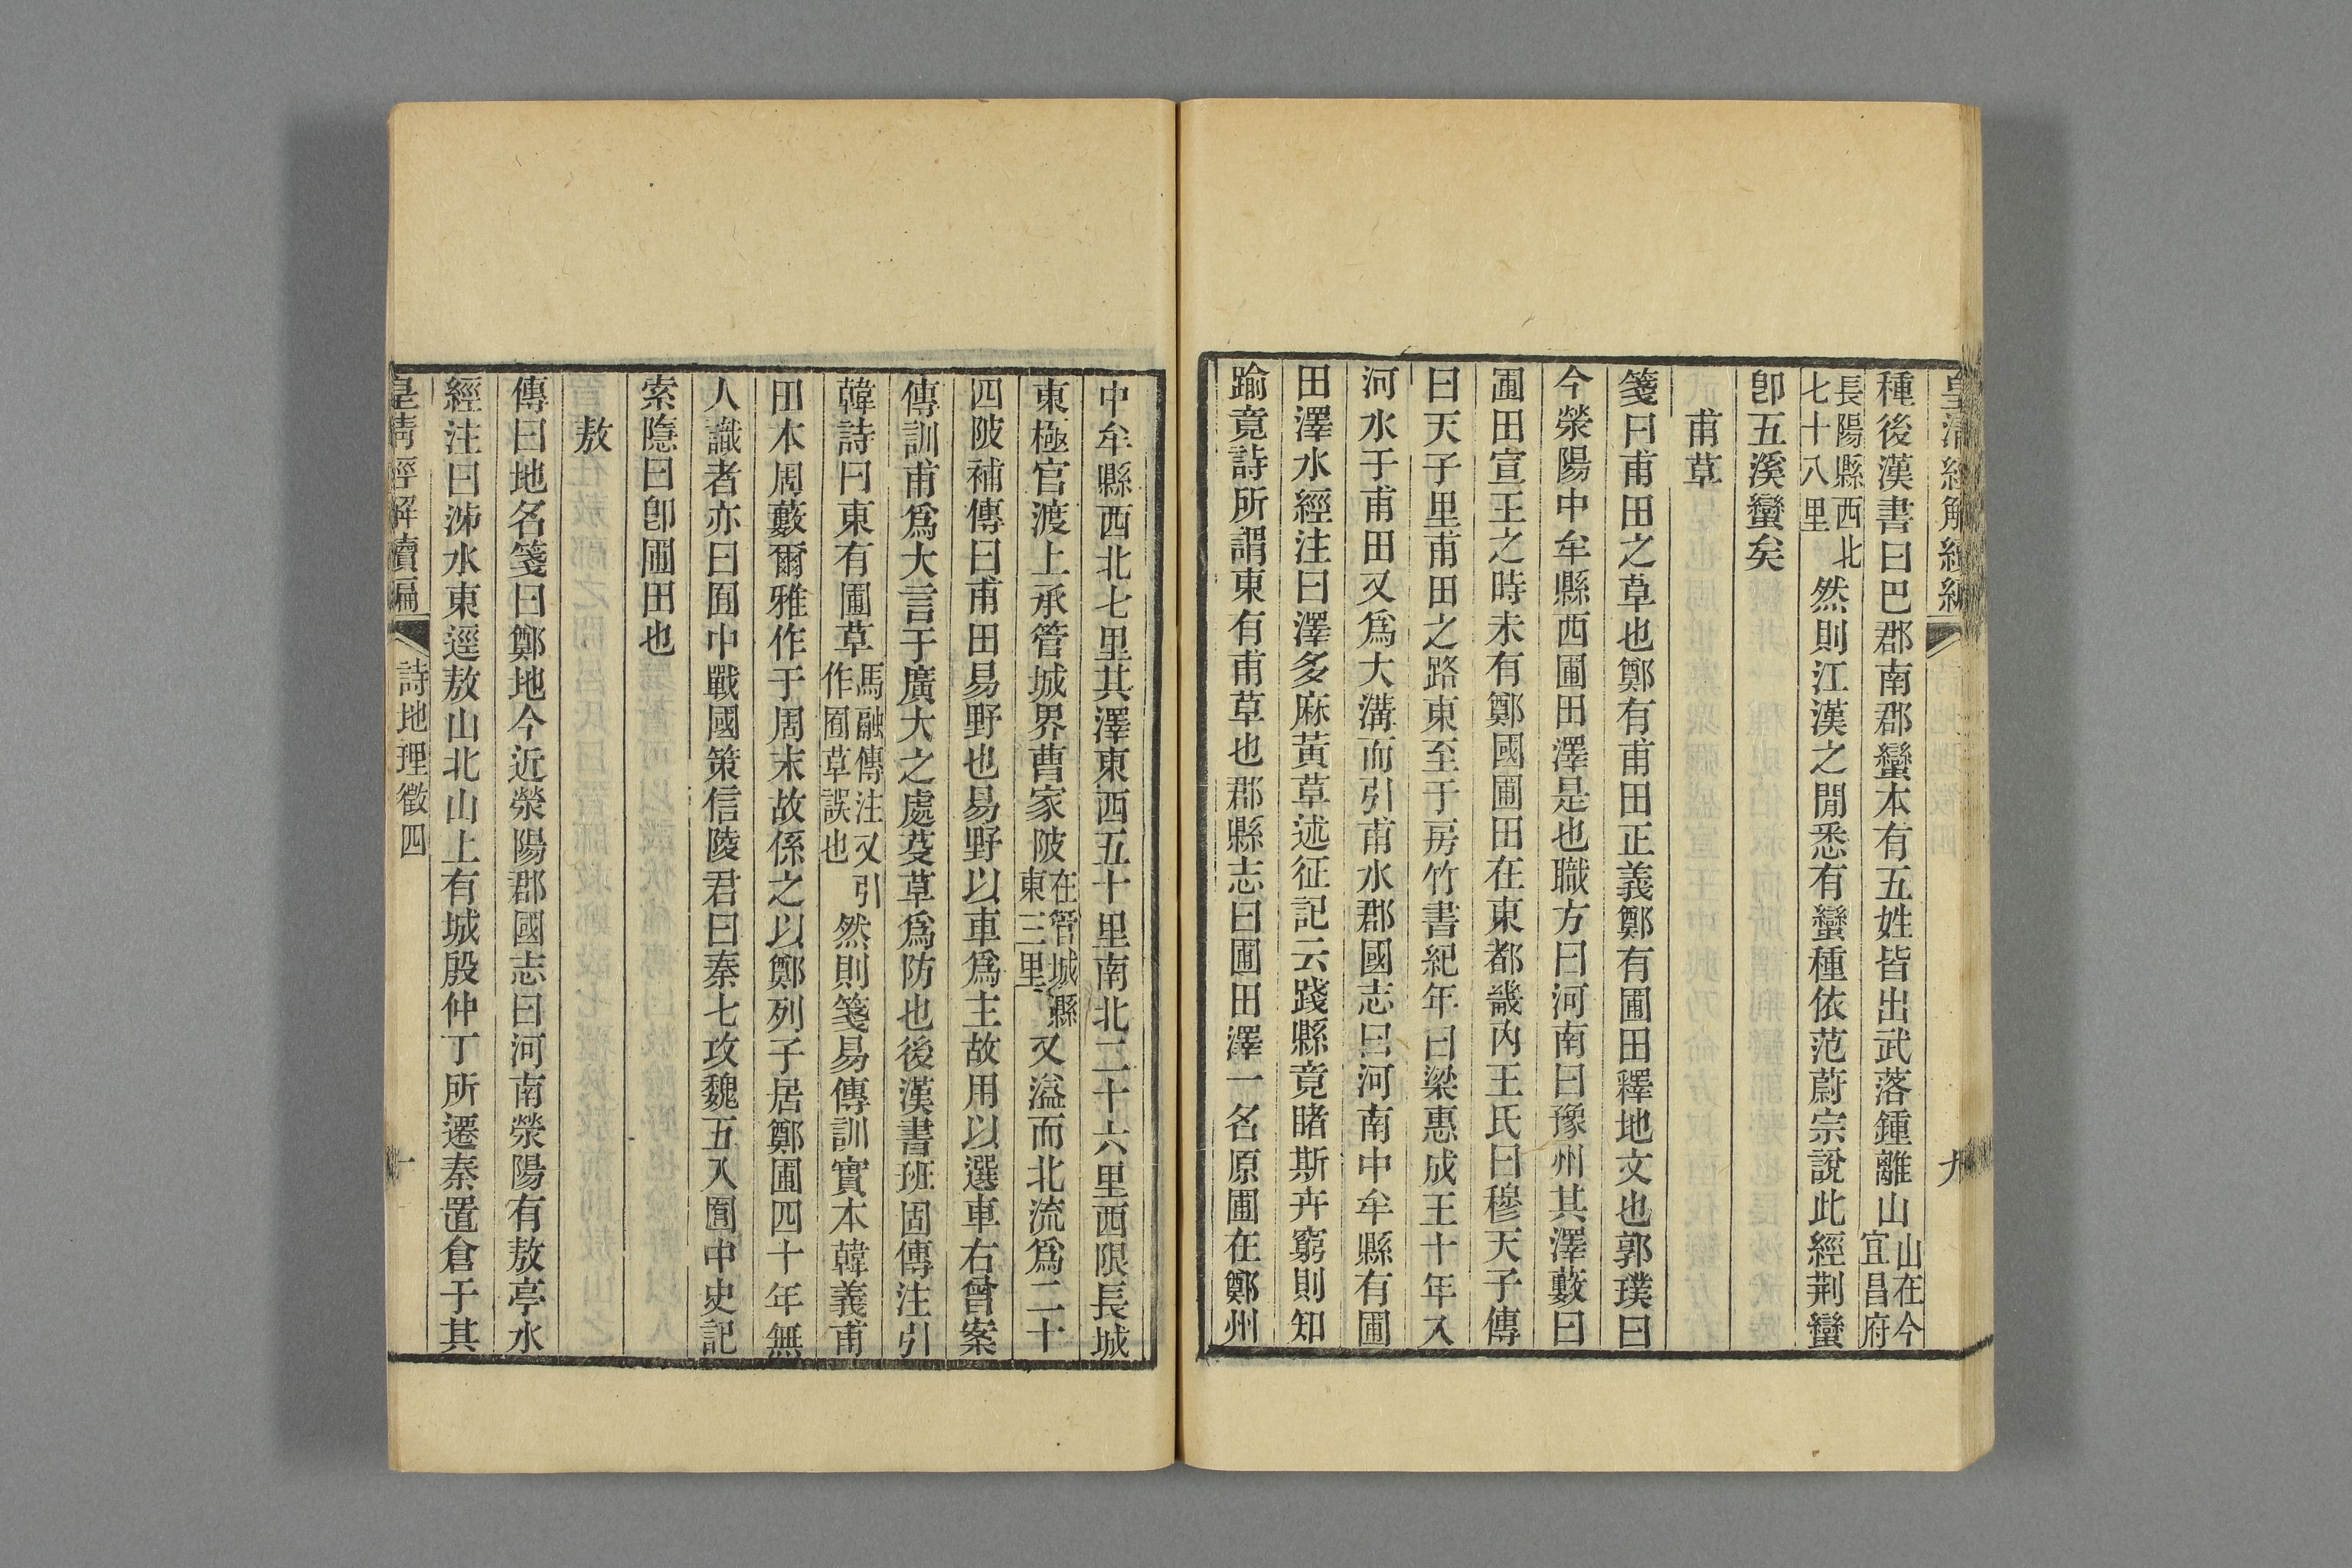 種後漢書曰巴郡南郡蠻本有五姓皆出武落鍾離山山在今宜昌府
長陽縣西北七十八里然則江漢之閒悉有蠻種依范蔚宗說此經荆蠻
卽五溪蠻矣
甫草
箋曰甫田之草也鄭有甫田正義鄭有圃田釋地文也郭璞曰
今滎陽中牟縣西圃田澤是也職方曰河南曰豫州其澤藪曰
圃田宣王之時未有鄭國圃田在東都畿內王氏曰穆天子傳
曰天子里甫田之路東至于房竹書紀年曰梁惠成王十年入
河水于甫田又爲大溝而引甫水郡國志曰河南中牟縣有圃
田澤水經注曰澤多麻黃草述征記云踐縣竟睹斯卉窮則知
踰竟詩所謂東有甫草也郡縣志曰圃田澤一名原圃在鄭州
中牟縣西北七里其澤東西五十里南北二十六里西限長城
東極官渡上承管城界曹家陂在管城縣東三里又溢而北流爲二十
四陂補傳曰甫田易野也易野以車爲主故用以選車右曾案
傳訓甫爲大言于廣大之處芟草爲防也後漢書班固傳注引
韓詩曰東有圃草馬融傳注又引作囿草誤也然則箋易傳訓實本韓義甫
田本周藪爾雅作于周末故係之以鄭列子居鄭圃四十年無
人識者亦曰囿中戰國策信陵君曰秦七攻魏五入囿中史記
索隱曰卽圃田也
敖
傳曰地名箋曰鄭地今近滎陽郡國志曰河南滎陽有敖亭水
經注曰泲水東逕敖山北山上有城殷仲丁所遷秦置倉于其
皇清經解續編
詩地理徵四